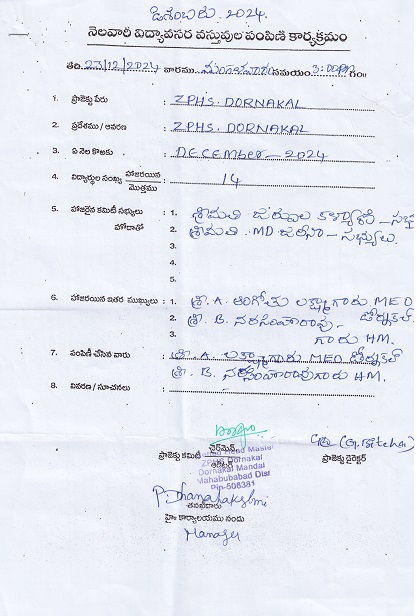 డిశెంబరు. 2024.
నెలవారీ విద్యావసర వస్తువుల పంపిణి కార్యక్రమం
తేది. 23/12/2024 వారము మంగళవారం సమయం 3:00PM గం॥
1. ప్రాజెక్టు పేరు : ZPHS. DORNAKAL
2. ప్రదేశము / ఆవరణ : ZPHS. DORNAKAL
3. ఏ నెల కొఱకు : DECEMBER - 2024
4. విద్యార్థుల సంఖ్య హాజరయిన / మొత్తము : 14
5. హాజరైన కమిటీ సభ్యులు : 1. శ్రీమతి కళ్యాణి - సభ్
హోదాతో 2. శ్రీమతి. MD - సభ్యులు.
3.
4.
5.
6. హాజరయిన ఇతర ముఖ్యులు : 1. శ్రీ. A. లక్ష్మాగారు MEO
డోర్నకల్.
2. శ్రీ. B. నరసింహారావు
3. గారు HM.
7. పంపిణీ చేసిన వారు : శ్రీ. A. లక్ష్మాగారు MEO డోర్నకల్
శ్రీ. B. నరసింహారావుగారు HM.
8. వివరణ / సూచనలు :
ప్రాజెక్టు కమిటీ చైర్మెన్
(G. 
ప్రాజెక్టు డైరెక్టర్
Head Master
ZPHS Dornakal
Dornakal Mandal
Mahabubabad Dist
Pin-506381
P. Dhanalakshmi
హెం కార్యాలయము నందు
Manager